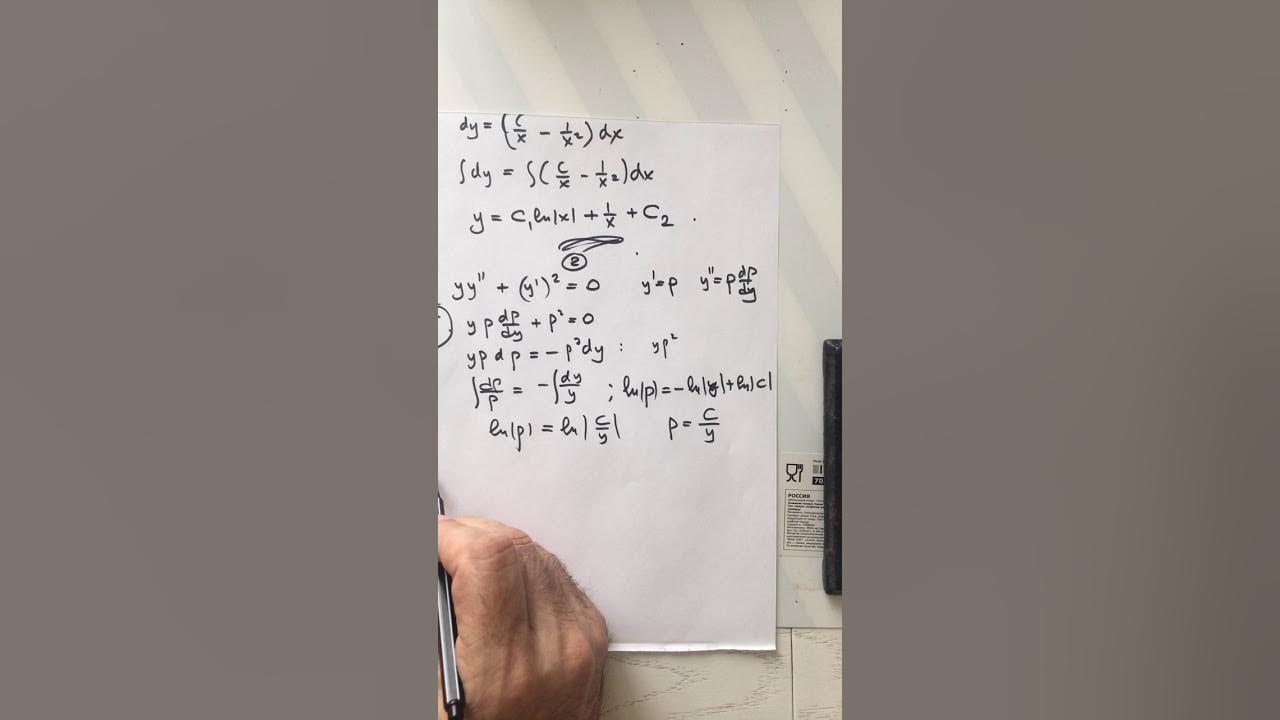 dy = (c/x - 1/x²) dx
∫dy = ∫(c/x - 1/x²)dx
y = C₁ ln|x| + 1/x + C₂ .
②
yy'' + (y')² = 0 y' = p y'' = p dp/dy
y p dp/dy + p² = 0
yp dp = - p² dy : yp²
∫dp/p = -∫dy/y ; ln|p| = -ln|y| + ln|C|
ln|p| = ln|C/y| p = C/y
70
РОССИЯ